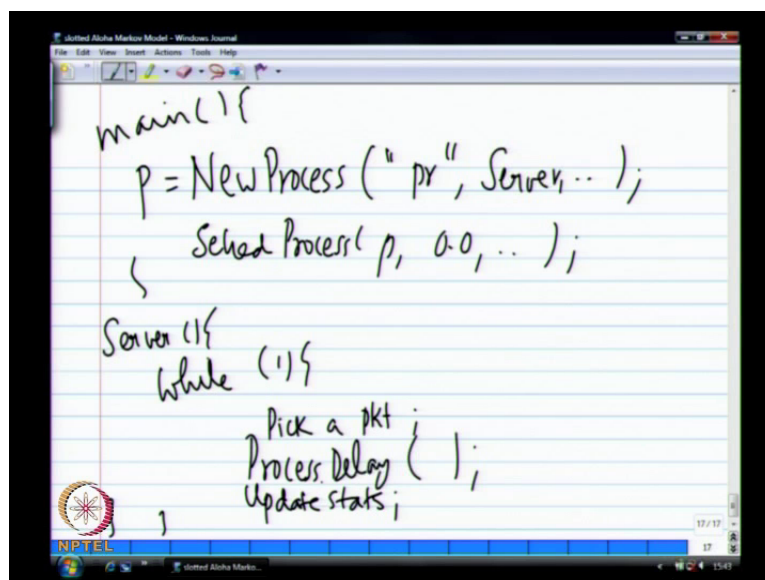 slotted Aloha Markov Model - Windows Journal
File Edit View Insert Actions Tools Help
main(){
p = NewProcess ("pr", Server, .. );
Sched Process( p, 0.0, .. );
}
Server (){
while (1){
Pick a pkt ;
Process.Delay ( );
Update stats ;
} }
NPTEL
17 / 17
17
slotted Aloha Marko...
1543